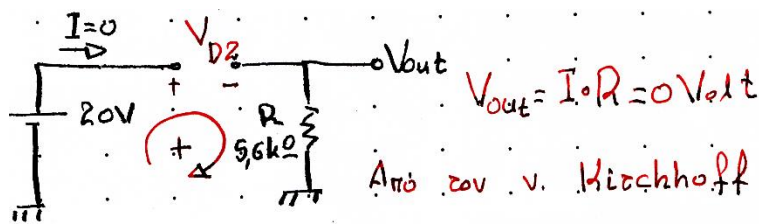 I=0
V_D2
+ -
Vout
20V
+
R
5,6kΩ
Vout = I·R = 0 Volt
Από τον ν. Kirchhoff